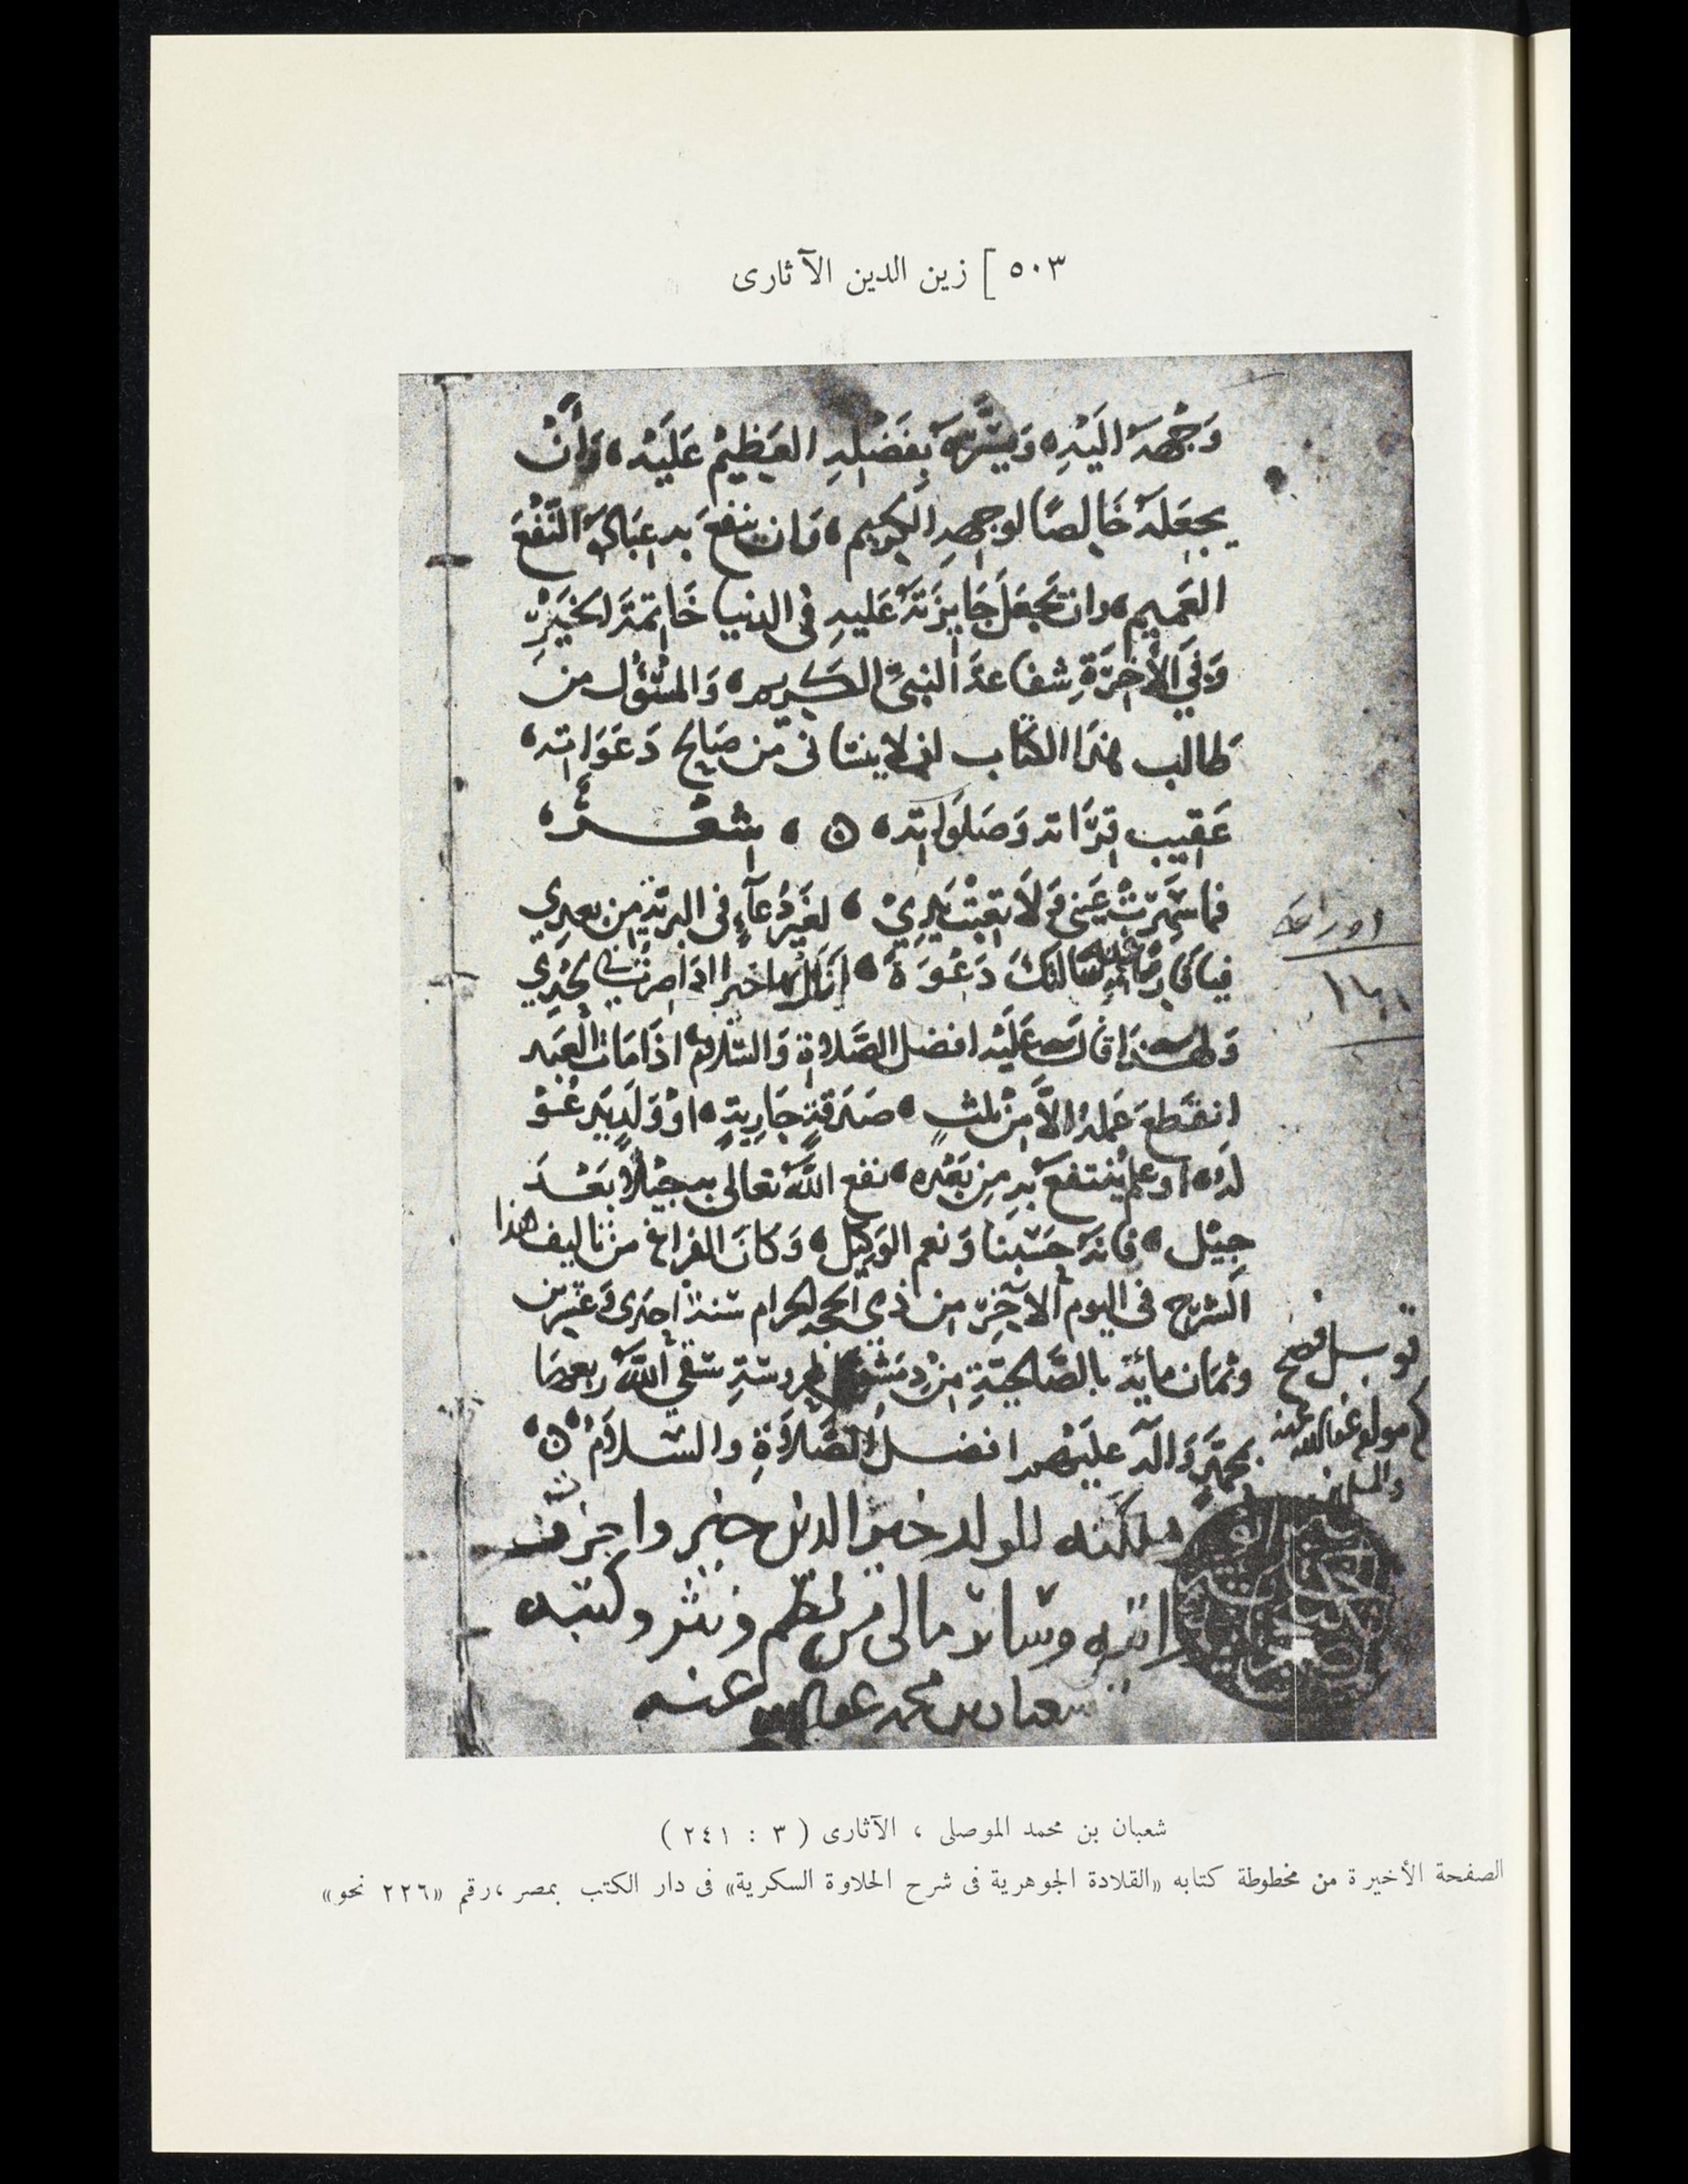 ٥٠٣ ] زين الدين الآثارى
وَجْهَهُ اليْهِ، وَيبشّرهُ بِفَضْلِهِ العَظِيْمِ عَلَيْهِ، وَأنْ
يجعَلهُ خَالِصًا لوجههِ الكريم، وَان ينفعَ به عِبَادَهُ النَّفْعَ
العَميم، وان تجعَلَ جَايزَتَهُ عَليهِ في الدنيا خَاتمتَه الخيْر
وَفي الأخِرَةِ شفاعةَ النبيّ الكريم، وَالمسْؤل من
طالب هذا الكتاب ان لا ينسانى من صَالح دَعَوَاته،
عَقِيب قرَّاته وَصَلَواته، ه ، شعْــر،
فما سَهرَتْ عَيني وَلَا تعِبَتْ يَدِيْ ، لغيرِ دُعآءٍ في البريّةِ من بعدي
فياقارئا فيه سالتكَ دَعْوَةً ، أنَال بها خيرا اذا صرتُ في لحدي
وَلهـذا قال عَلَيْه افضل الصَّلاةِ وَالسّلام، اذَا مَات العَبد
انقطعَ عَمله الاَّ مِنْ ثلثٍ، صَدَقةٍ جَارِيةٍ، اوْ وَلَدٍ يَدعُوْ
لهُ، اوعلم يُنتفعُ بهِ مِن بَعْدِه، نفع اللهُ تعالى به جيْلاً بَعْـدَ
جيْل، فانهُ حَسْبنا وَنعم الوَكيْل، وَكانَ الفراغ من تاليف هذا
الشرح في اليوم الاخِر من ذي الحجه الحرام سنة احدى وَعشرين
وثمان مائة بالصَّالحيّةِ مِنْ دِمشق المحروسةِ سَقى اللهُ ربعهَا
بمحمّدٍ وَالهِ عليهم افضل الصَّلاَةِ والسّلاَم، ه،
ملكته للولد خير الدين خضر واجزت
له روايته وساير مالى من نظم ونثر وكتبه
شعبان بن محمد عفا الله عنه
اوراقه
١٨١
شعبان بن محمد الموصلى ، الآثارى ( ٣ : ٢٤١ )
الصفحة الأخيرة من مخطوطة كتابه «القلادة الجوهرية فى شرح الحلاوة السكرية» فى دار الكتب بمصر ، رقم «٢٢٦ نحو»